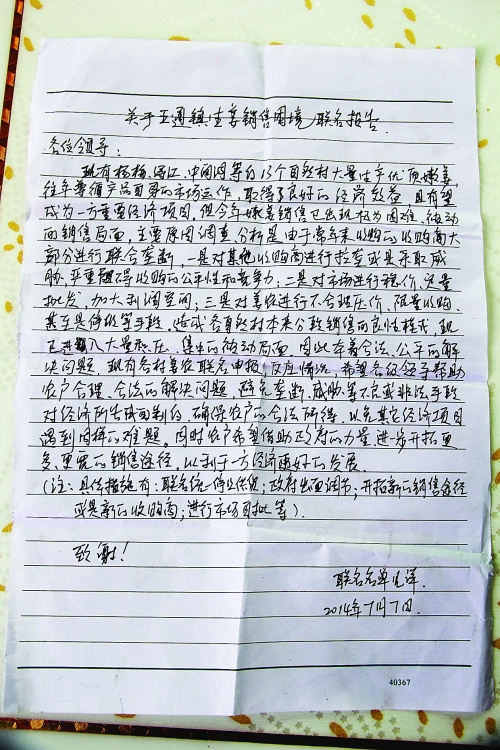 关于五通镇生姜销售困境联名报告
各位领导：
现有杨梅、江、中间洞等的13个自然村大量生产优质嫩姜，
往年遵循产品自身的市场运作，取得了良好的经济效益，且有望
成为一方重要经济项目，但今年嫩姜销售已出现极为困难、被动
的销售局面，主要原因调查、分析是由于常年来收购的收购商大
部分进行联合垄断，一是对其他收购商进行拉拢或是采取威
胁，严重破坏收购的公平性和竞争力；二是对市场进行稳价、定量
批发、加大利润空间；三是对姜农进行不合理压价、限量收购、
甚至是停收等手段，造成各自然村本来分散销售的良性模式，现
已进入大量积压、集中的被动局面，因此本着合法、公平的解
决问题，现有各村姜农联名申报，反应情况，希望各级领导帮助
农户合理、合法的解决问题，避免垄断、威胁等不良或非法手段
对经济所造成的制约，确保农户的合法所得，以免其它经济项目
遇到同样的难题，同时农户希望借助政府的力量进步开拓更
多、更宽的销售途径，以利于一方经济更好的发展。
（注：具体措施有：联名统一停止供货；政府出面调节；开拓新的销售途径
或是新的收购商；进行市场自批等）
致谢！
联名名单见详
2014年7月7日
40367